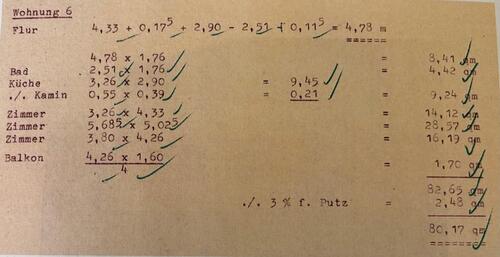 Wohnung 6
Flur 4,33 + 0,17⁵ + 2,90 - 2,51 + 0,11⁵ = 4,78 m
4,78 x 1,76 = 8,41 qm
Bad 2,51 x 1,76 = 4,42 qm
Küche 3,26 x 2,90 = 9,45
./. Kamin 0,55 x 0,39 = 0,21 = 9,24 qm
Zimmer 3,26 x 4,33 = 14,12 qm
Zimmer 5,68⁵ x 5,02⁵ = 28,57 qm
Zimmer 3,80 x 4,26 = 16,19 qm
Balkon 4,26 x 1,60 = 1,70 qm
4
82,65 qm
./. 3 % f. Putz = 2,48 qm
80,17 qm